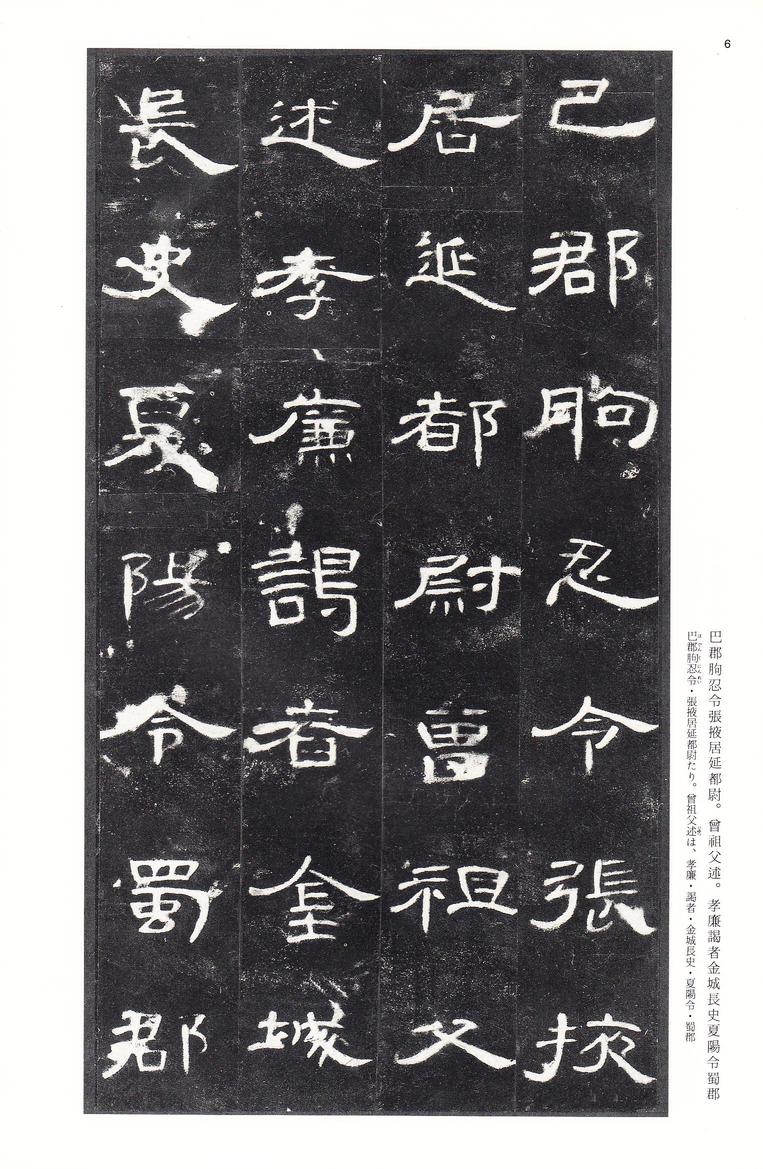 6
巴郡朐忍令張掖
居延都尉曾祖父
述孝廉謁者金城
長史夏陽令蜀郡
巴郡朐忍令張掖居延都尉。曾祖父述。孝廉謁者金城長史夏陽令蜀郡
巴郡朐忍令・張掖居延都尉たり。曾祖父述は、孝廉・謁者・金城長史・夏陽令・蜀郡